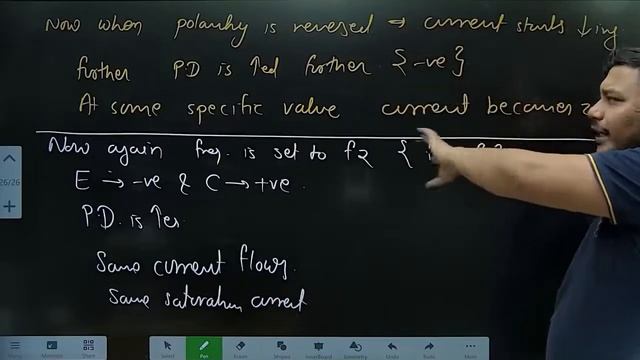 Now when polarity is reversed → current starts ↓ing
further P.D is ↑ed further {-ve}
At some specific value current becomes
Now again freq. is set to f2 {
E → -ve & C → +ve.
P.D. is ↑es
Same current flows.
Same saturation current
26/26
Menu
Whiteboard
Select
Pen
Eraser
Shapes
InnerBoard
Geometry
Undo
Redo